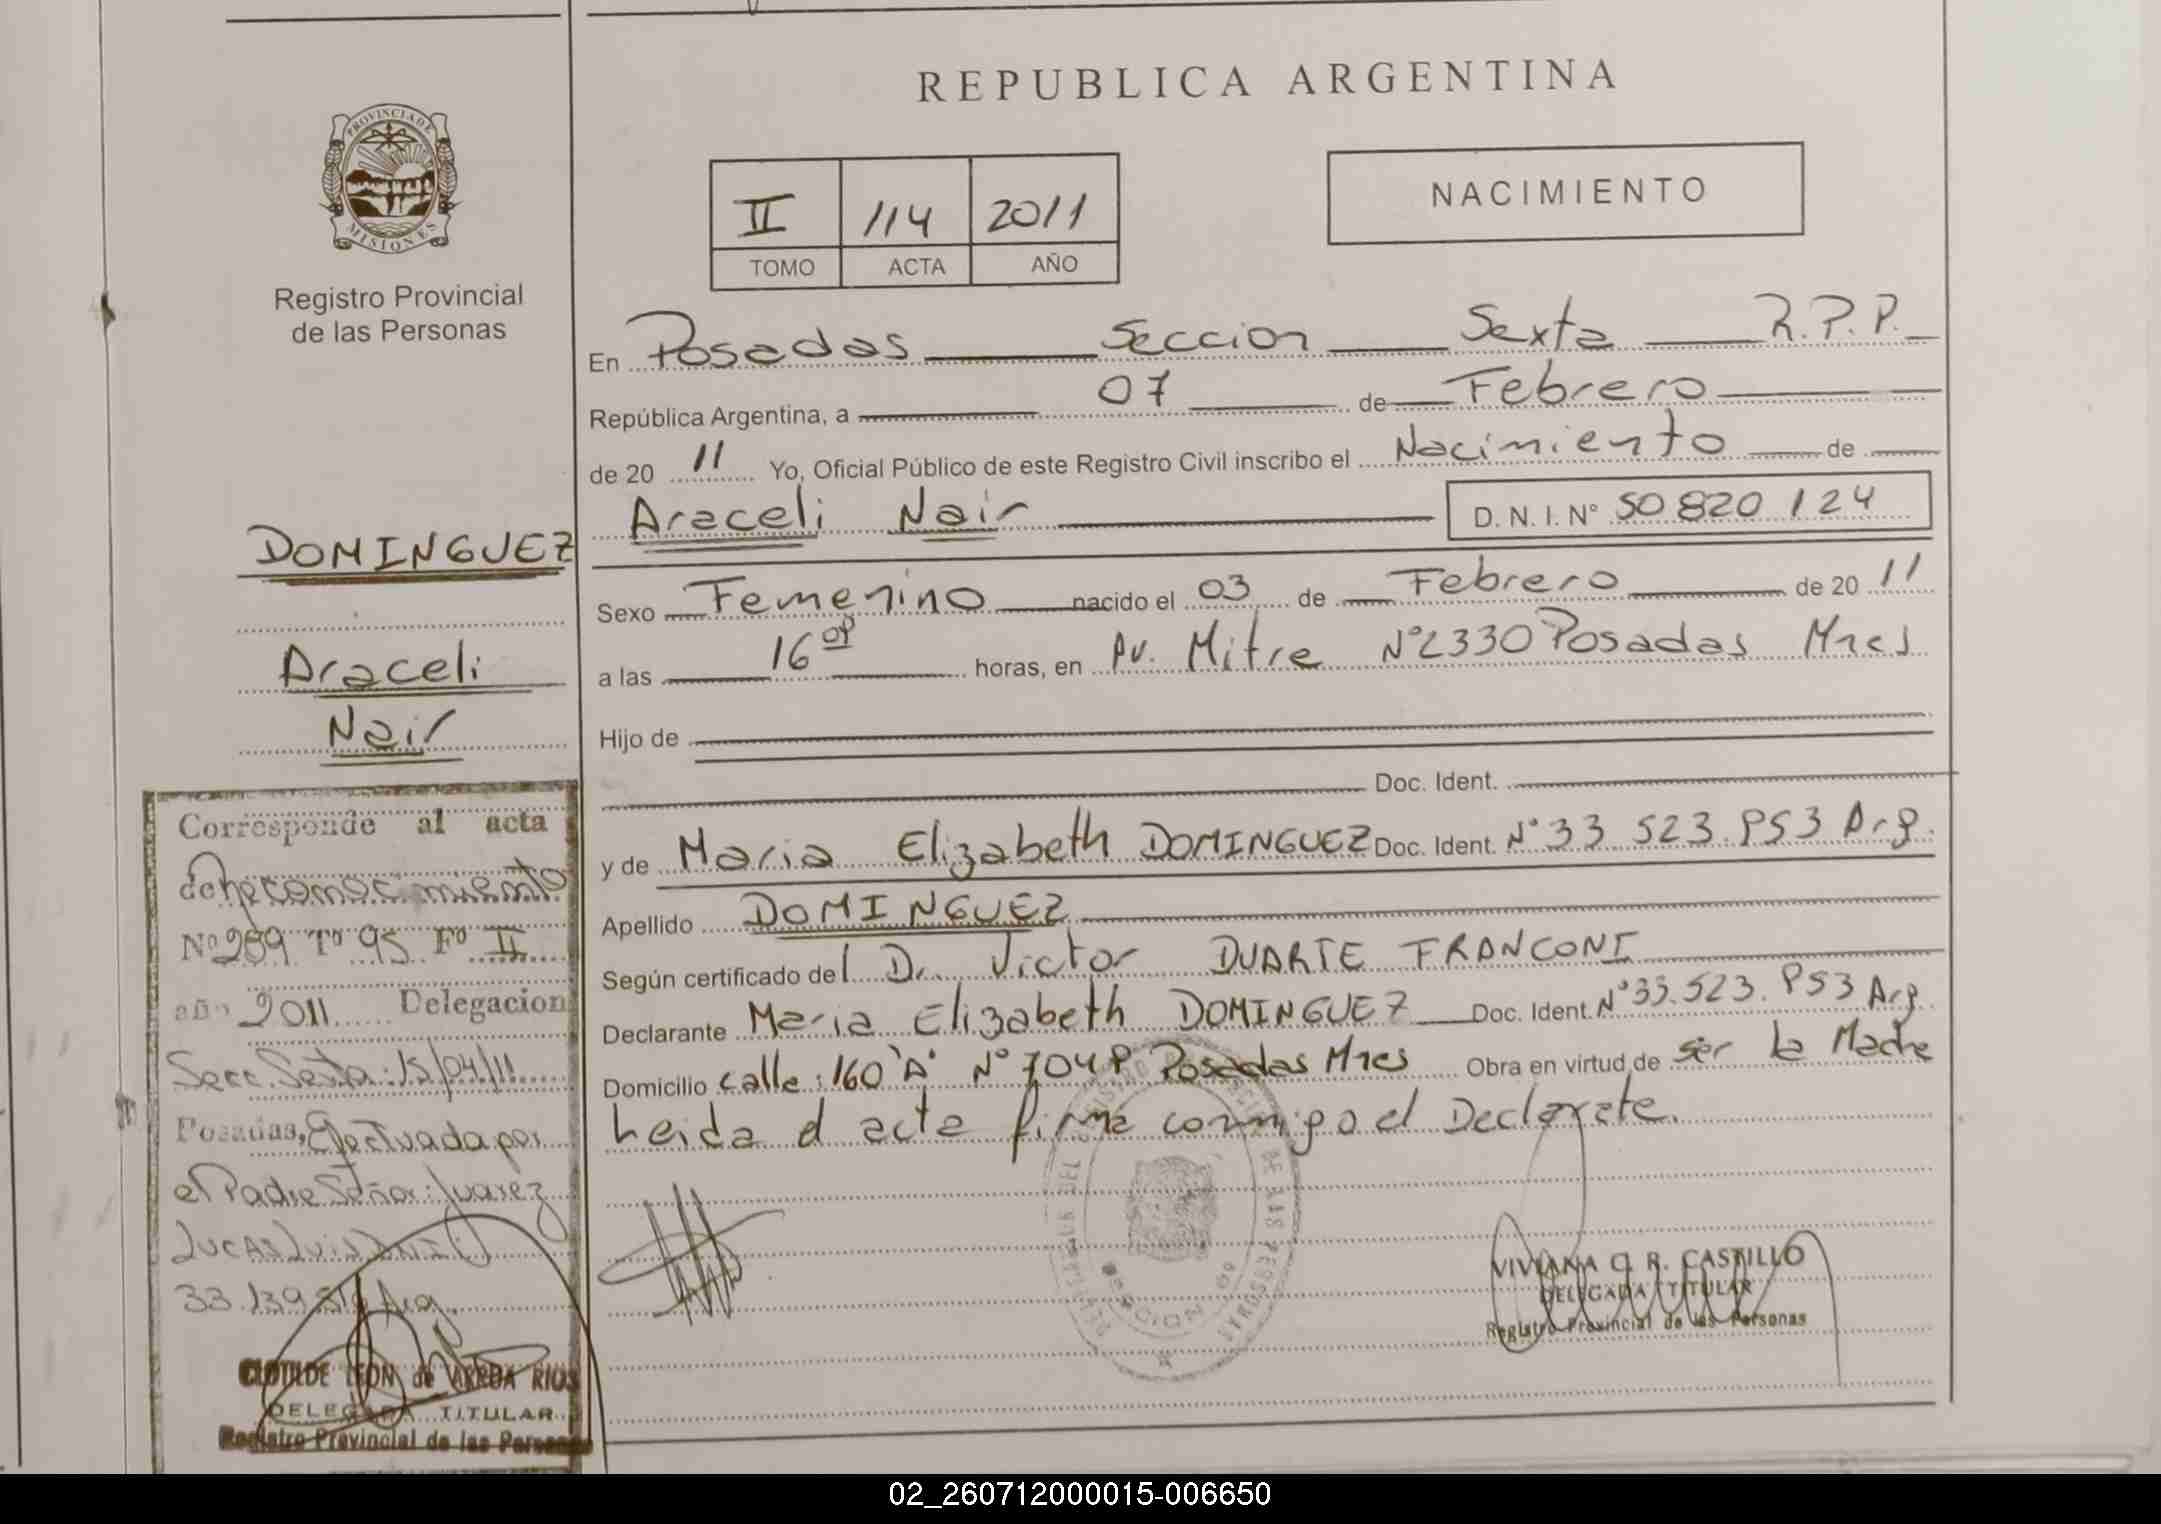 REPUBLICA ARGENTINA
PROVINCIA DE MISIONES
Registro Provincial
de las Personas
II 114 2011
TOMO ACTA AÑO
NACIMIENTO
En Posadas Seccion Sexta R.P.P.
República Argentina, a 07 de Febrero
de 20 11 Yo, Oficial Público de este Registro Civil inscribo el Nacimiento de
Araceli Nair D. N. I. N° 50 820 124
Sexo Femenino nacido el 03 de Febrero de 20 11
a las 16 horas, en Av. Mitre N°2330 Posadas Mnes
Hijo de
Doc. Ident.
y de Maria Elizabeth DOMINGUEZ Doc. Ident. N° 33 523 953 Arg.
Apellido DOMINGUEZ
Según certificado del Dr. Victor DUARTE FRANCONI
Declarante Maria Elizabeth DOMINGUEZ Doc. Ident. N°33.523.953 Arg.
Domicilio calle: 160 "A" N° Posadas Mnes Obra en virtud de ser la Madre
Leida el acta firma conmigo el Declarate.
VIVIANA C. R. CASTILLO
DELEGADA TITULAR
Registro Provincial de las Personas
DOMINGUEZ
Araceli
Nair
Corresponde al acta
de Reconocimiento
Nº 289 Tº 95 Fº II
año 2011 Delegacion
Secc. Sexta: 15/04/11
Posadas, Efectuada por
el Padre Señor: Juarez
Lucas Luis
33.139 Arg.
CLOTILDE LEON de RIOS
DELEGADA TITULAR
Registro Provincial de las Personas
02_260712000015-006650